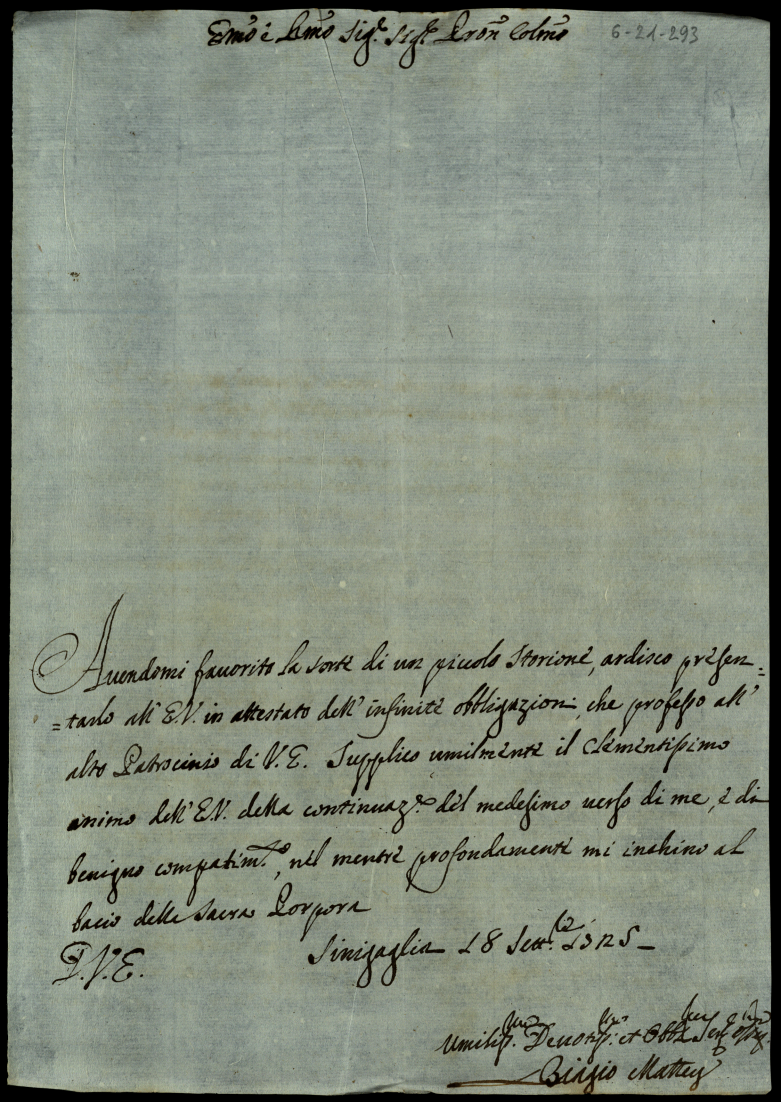 Em̃o e Rm̃o Sig.r Sig.r Prõn Colm̃o 6-21-293
Auendomi fauorito la sorte di un piccolo storione, ardisco presen=
=tarlo all' E.V. in attestato dell' infinite obbligazioni, che professo all'
alto Patrocinio di V.E. Supplico umilmente il Clementissimo
animo dell' E.V. della continuaz.ne del medesimo uerso di me, e di
benigno compatim.to, nel mentre profondamente mi inchino al
bacio della Sacra Porpora
D.V.E. Sinigaglia 18 Sett.bre
Umiliss.mo Deuotiss.mo et Obb.mo
Biagio Mattey